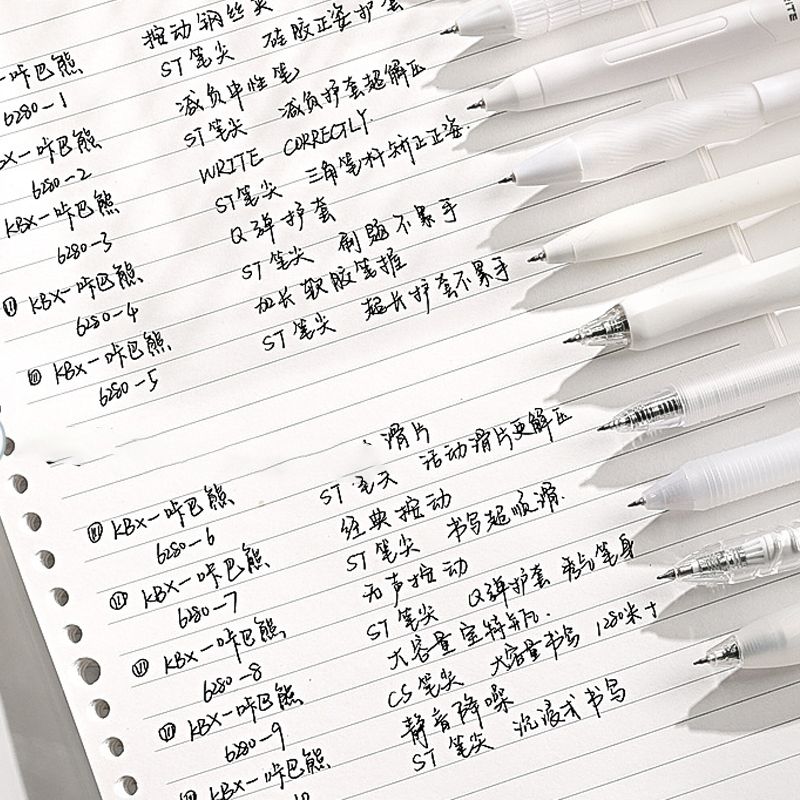 按动钢丝夹
咔巴熊 ST笔尖 硅胶正姿护套
6280-1 减负中性笔
KBX-咔巴熊 ST笔尖 减负护套超解压
6280-2 WRITE CORRECTLY
KBX-咔巴熊 ST笔尖 三角笔杆矫正正姿.
6280-3 Q弹护套
KBX-咔巴熊 ST笔尖 刷题不累手
6280-4 加长软胶笔握
KBX-咔巴熊 ST笔尖 超长护套不累手
6280-5
滑片
KBX-咔巴熊 ST 活动滑片更解压
6280-6 经典按动
KBX-咔巴熊 ST笔尖 书写超顺滑.
6280-7 无声按动
KBX-咔巴熊 ST笔尖 Q弹护套 笔身
6280-8 大容量宝特瓶.
KBX-咔巴熊 CS笔尖 大容量书写 1280米+
6280-9 静音降噪
KBX-咔巴熊 ST笔尖 沉浸式书写
10